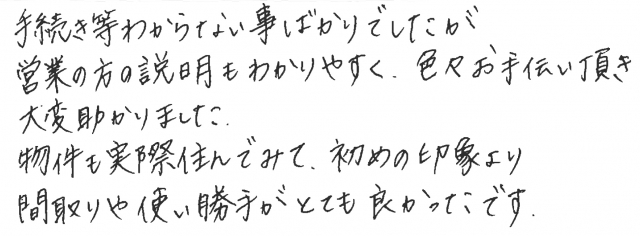 手続き等わからない事ばかりでしたが
営業の方の説明もわかりやすく、色々お手伝い頂き
大変助かりました。
物件も実際住んでみて、初めの印象より
間取りや使い勝手がとても良かったです。